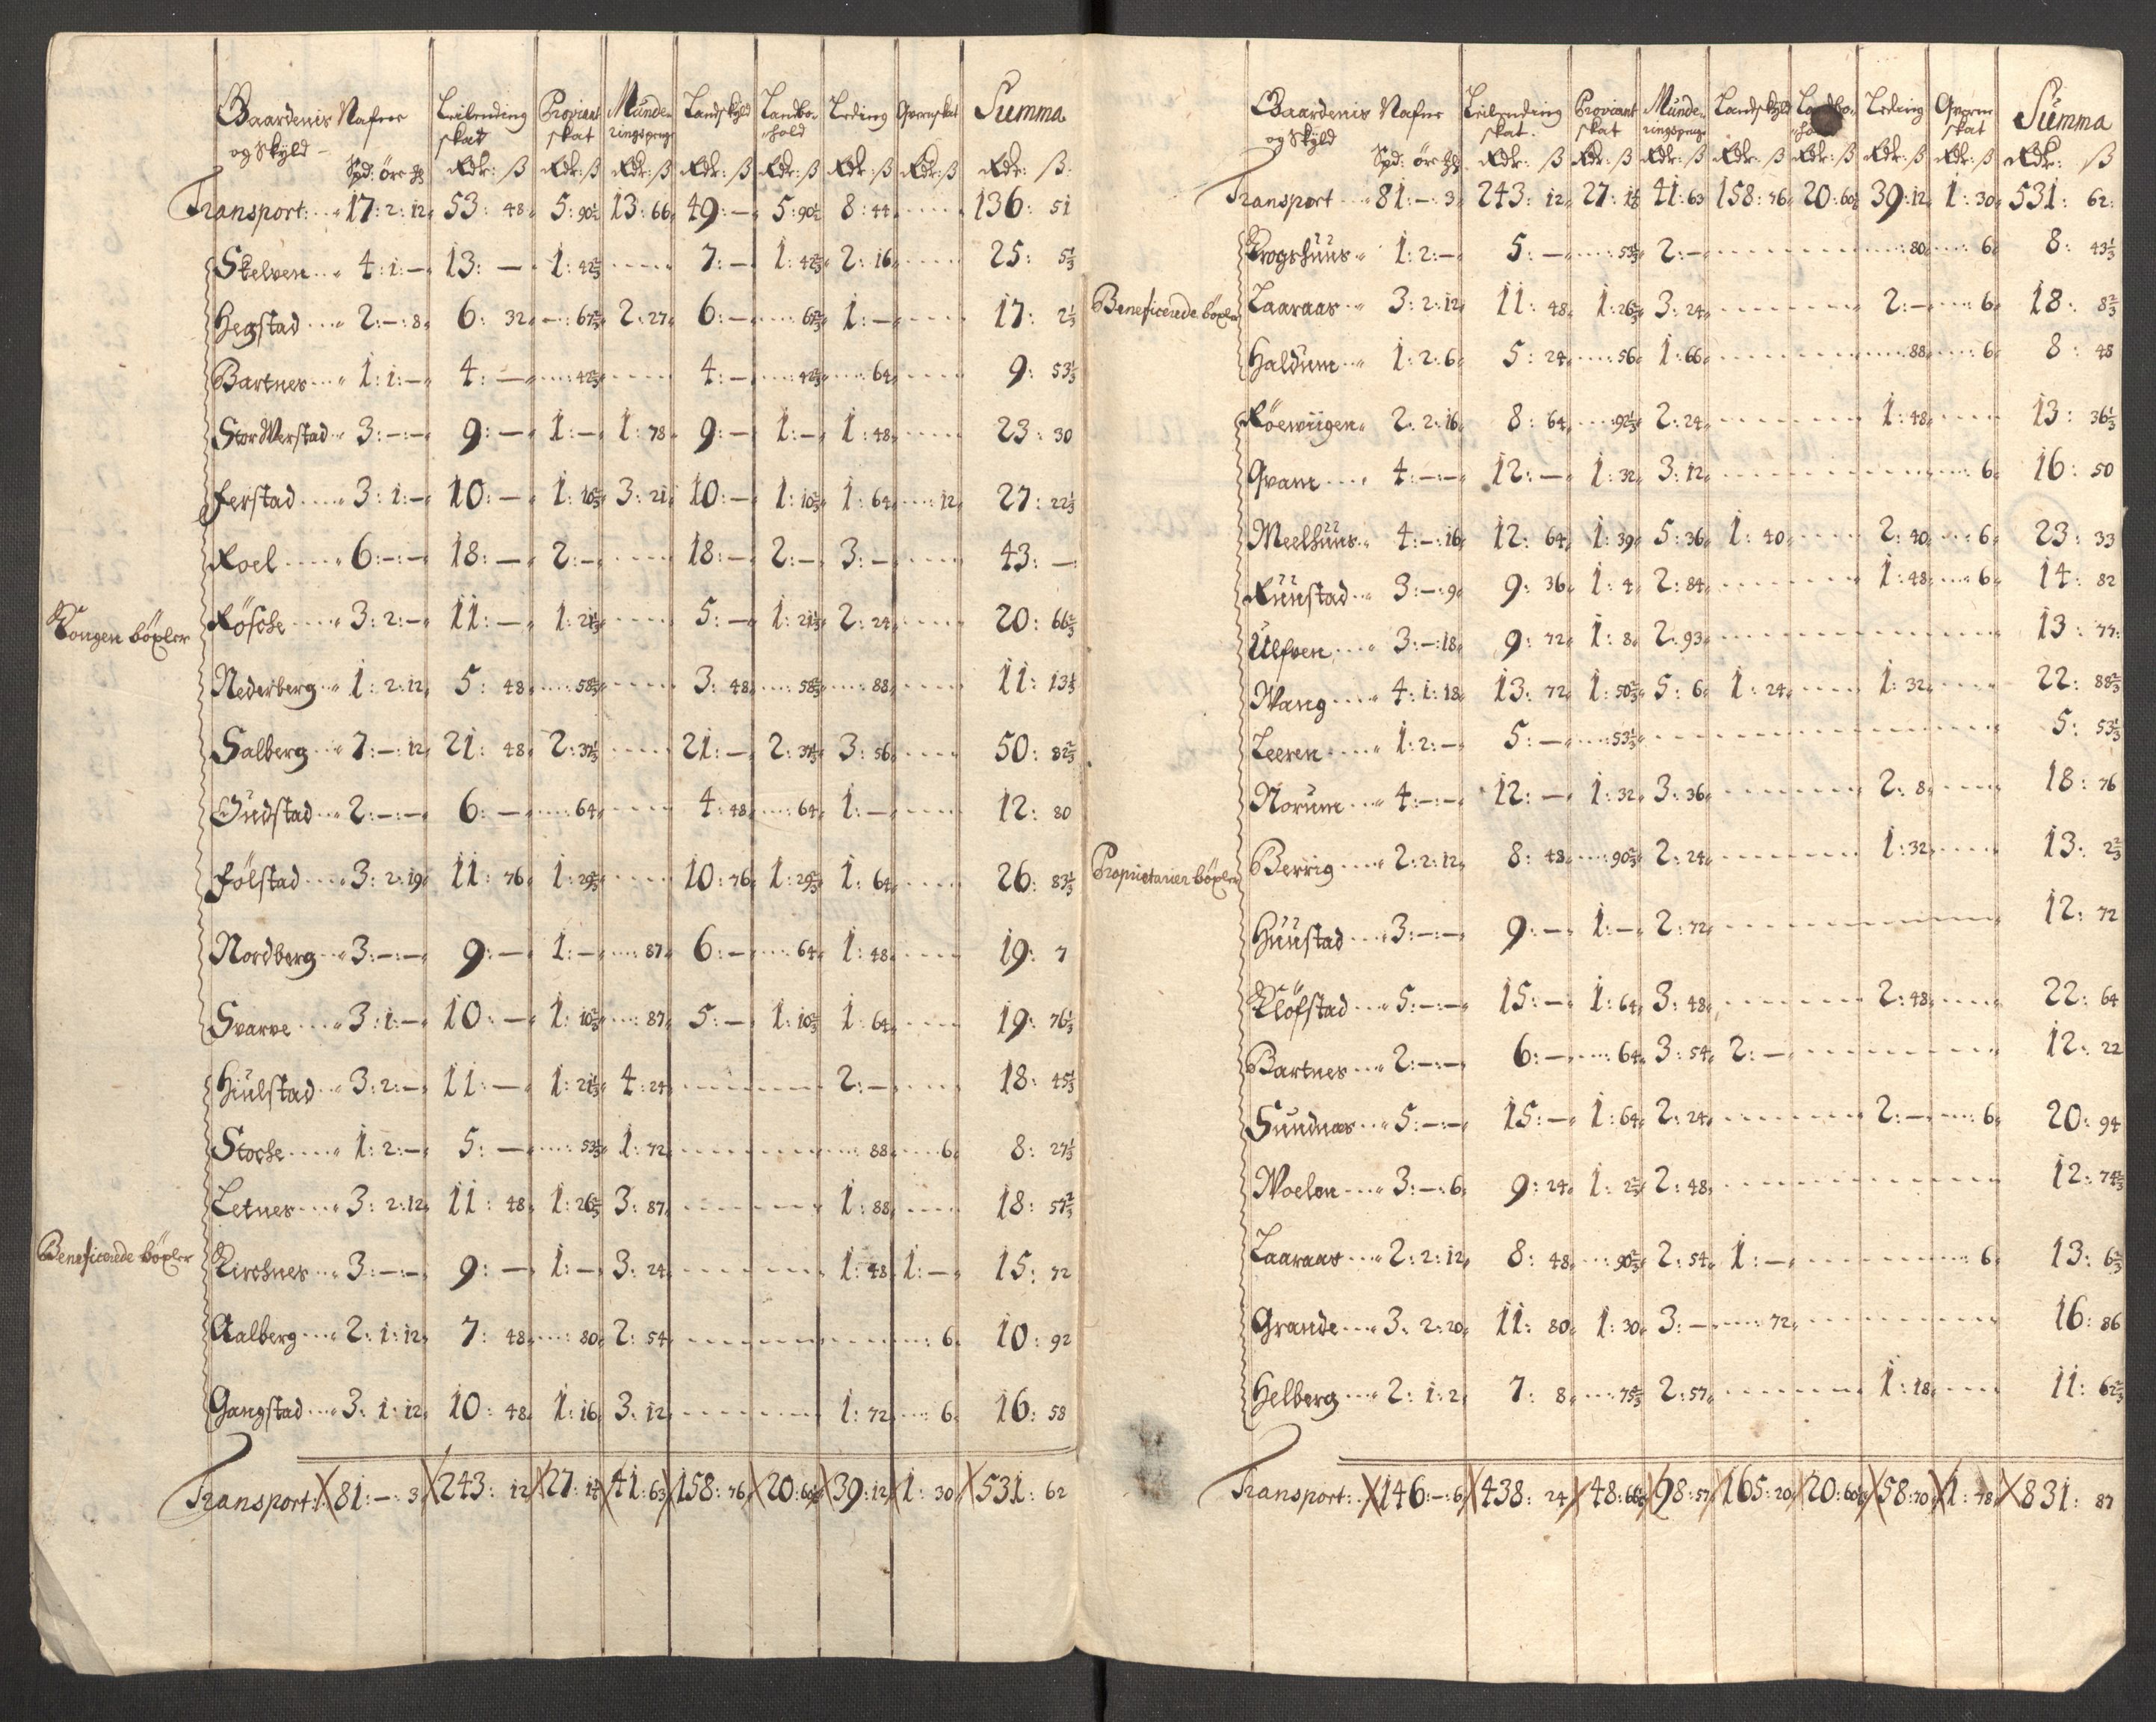 Gaardenis Nafne og Skyld – Spd: öre ₰ | Leilending skat Rdr: ß | Proviant skat Rdr: ß | Munderingspenge Rdr: ß | Landskyld Rdr: ß | Landbohold Rdr: ß | Leding Rdr: ß | Qvernskat Rdr: ß | Summa Rdr: ß
Transport: 17: 2: 12 | 53: 48 | 5: 90½ | 13: 66 | 49: – | 5: 90½ | 8: 44 | | 136: 51
Skelven 4: 1: – | 13: – | 1: 42⅔ | | 7: – | 1: 42⅔ | 2: 16 | | 25: 5⅓
Hegstad 2: –: 8 | 6: 32 | –: 67⅔ | 2: 27 | 6: – | 67⅔ | 1: – | | 17: 2⅓
Bartnes 1: 1: – | 4: – | 42⅔ | | 4: – | 42⅔ | 64 | | 9: 53⅓
Stor Werstad 3: –: – | 9: – | 1: – | 1: 78 | 9: – | 1: – | 1: 48 | | 23: 30
Ferstad 3: 1: – | 10: – | 1: 10⅔ | 3: 21 | 10: – | 1: 10⅔ | 1: 64 | 12 | 27: 22⅓
Roel 6: –: – | 18: – | 2: – | | 18: – | 2: – | 3: – | | 43: –
Kongen böxler
Röske 3: 2: – | 11: – | 1: 21⅓ | | 5: – | 1: 21⅓ | 2: 24 | | 20: 66⅔
Nederberg 1: 2: 12 | 5: 48 | 58⅔ | | 3: 48 | 58⅔ | 88 | | 11: 13⅓
Salberg 7: –: 12 | 21: 48 | 2: 37⅓ | | 21: – | 2: 37⅓ | 3: 56 | | 50: 82⅔
Oudstad 2: –: – | 6: – | 64 | | 4: 48 | 64 | 1: – | | 12: 80
Fölstad 3: 2: 19 | 11: 76 | 1: 29⅔ | | 10: 76 | 1: 29⅔ | 1: 64 | | 26: 83⅓
Nordberg 3: –: – | 9: – | 1: – | 87 | 6: – | 64 | 1: 48 | | 19: 7
Svarve 3: 1: – | 10: – | 1: 10⅔ | 87 | 5: – | 1: 10⅔ | 1: 64 | | 19: 76⅓
Hiulstad 3: 2: – | 11: – | 1: 21⅓ | 4: 24 | | | 2: – | | 18: 45⅓
Stoche 1: 2: – | 5: – | 53⅓ | 1: 72 | | | 88 | 6 | 8: 27⅓
Letnes 3: 2: 12 | 11: 48 | 1: 26⅔ | 3: 87 | | | 1: 88 | | 18: 57⅔
Beneficerede böxler
Kirchnes 3: –: – | 9: – | 1: – | 3: 24 | | | 1: 48 | 1: – | 15: 72
Aalberg 2: 1: 12 | 7: 48 | 80 | 2: 54 | | | | 6 | 10: 92
Gangstad 3: 1: 12 | 10: 48 | 1: 16 | 3: 12 | | | 1: 72 | 6 | 16: 58
Transport: 81: –: 3 | 243: 12 | 27: 1½ | 41: 63 | 158: 76 | 20: 60½ | 39: 12 | 1: 30 | 531: 62
Gaardenis Nafne og Skyld Spd: öre ₰ | Leilending skat. Rdr: ß | Proviant skat Rdr: ß | Munderingspenge Rdr: ß | Landskyld Rdr: ß | Landbohold Rdr: ß | Leding Rdr: ß | Qvern skat Rdr: ß | Summa Rdr: ß
Transport 81: –: 3 | 243: 12 | 27: 1½ | 41: 63 | 158: 76 | 20: 60½ | 39: 12 | 1: 30 | 531: 62
Krogshuus 1: 2: – | 5: – | 53⅓ | 2: – | | | 80 | 6 | 8: 43⅓
Beneficerede böxler
Laaraas 3: 2: 12 | 11: 48 | 1: 26⅔ | 3: 24 | | | 2: – | 6 | 18: 8⅔
Haldum 1: 2: 6 | 5: 24 | 56 | 1: 66 | | | 88 | 6 | 8: 48
Röewiigen 2: 2: 16 | 8: 64 | 92⅓ | 2: 24 | | | 1: 48 | | 13: 36⅓
Qvam 4: –: – | 12: – | 1: 32 | 3: 12 | | | | 6 | 16: 50
Meelhuus 4: –: 16 | 12: 64 | 1: 39 | 5: 36 | 1: 40 | | 2: 40 | 6 | 23: 33
Ruustad 3: –: 9 | 9: 36 | 1: 4 | 2: 84 | | | 1: 48 | 6 | 14: 82
Ulfven 3: –: 18 | 9: 72 | 1: 8 | 2: 93 | | | | | 13: 77
Wang 4: 1: 18 | 13: 72 | 1: 50⅔ | 5: 6 | 1: 24 | | 1: 32 | | 22: 88⅔
Leeren 1: 2: – | 5: – | 53⅓ | | | | | | 5: 53⅓
Norum 4: –: – | 12: – | 1: 32 | 3: 36 | | | 2: 8 | | 18: 76
Proprietarier böxler
Berrig 2: 2: 12 | 8: 48 | 90⅔ | 2: 24 | | | 1: 32 | | 13: 2⅔
Huustad 3: –: – | 9: – | 1: – | 2: 72 | | | | | 12: 72
Klöfstad 5: –: – | 15: – | 1: 64 | 3: 48 | | | 2: 48 | | 22: 64
Bartnes 2: –: – | 6: – | 64 | 3: 54 | 2: – | | | | 12: 22
Sundnæs 5: –: – | 15: – | 1: 64 | 2: 24 | | | 2: – | 6 | 20: 94
Woelen 3: –: 6 | 9: 24 | 1: 2⅔ | 2: 48 | | | | | 12: 74⅔
Laaraas 2: 2: 12 | 8: 48 | 90⅔ | 2: 54 | 1: – | | | 6 | 13: 6⅔
Grande 3: 2: 20 | 11: 80 | 1: 30 | 3: – | 72 | | | | 16: 86
Helberg 2: 1: 2 | 7: 8 | 75⅔ | 2: 57 | | | 1: 18 | | 11: 62⅔
Transport: 146: –: 6 | 438: 24 | 48: 66½ | 98: 57 | 165: 20 | 20: 60½ | 58: 70 | 1: 78 | 831: 87